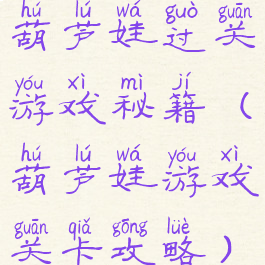 hú lú wá guò guān
葫芦娃过关
yóu xì mì jí
游戏秘籍（
hú lú wá yóu xì
葫芦娃游戏
guān qiǎ gōng lüè
关卡攻略）